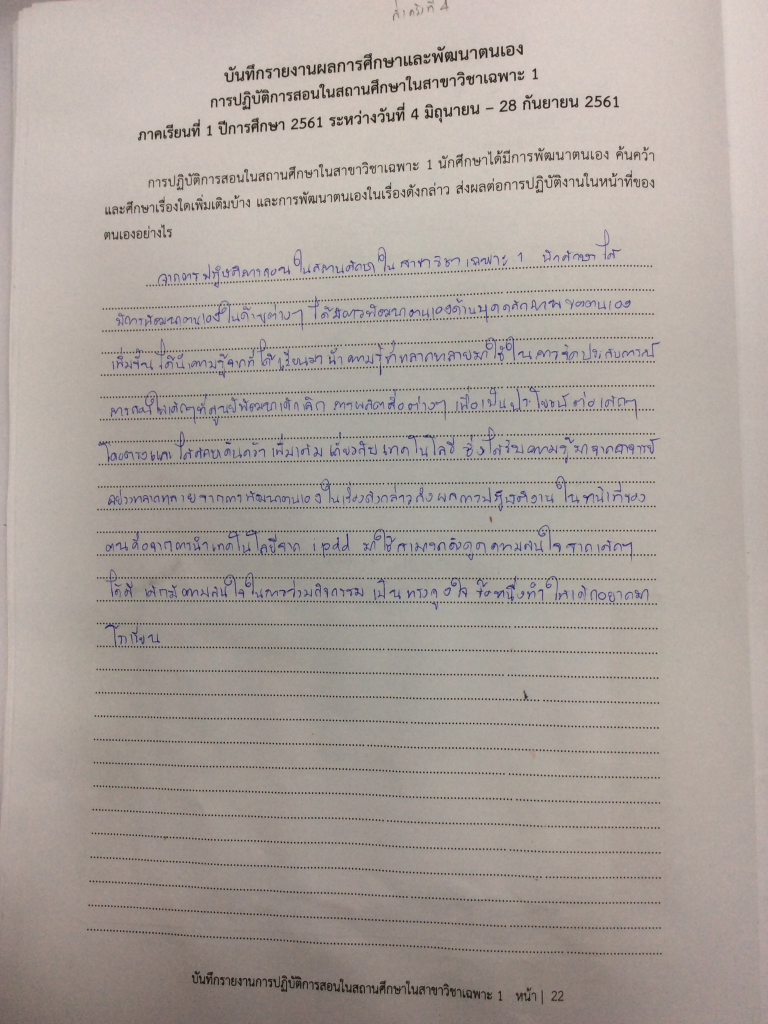 ส่งครั้งที่ 4
บันทึกรายงานผลการศึกษาและพัฒนาตนเอง
การปฏิบัติการสอนในสถานศึกษาในสาขาวิชาเฉพาะ 1
ภาคเรียนที่ 1 ปีการศึกษา 2561 ระหว่างวันที่ 4 มิถุนายน – 28 กันยายน 2561
การปฏิบัติการสอนในสถานศึกษาในสาขาวิชาเฉพาะ 1 นักศึกษาได้มีการพัฒนาตนเอง ค้นคว้า
และศึกษาเรื่องใดเพิ่มเติมบ้าง และการพัฒนาตนเองในเรื่องดังกล่าว ส่งผลต่อการปฏิบัติงานในหน้าที่ของ
ตนเองอย่างไร
จากการปฏิบัติการสอนในสถานศึกษาในสาขาวิชาเฉพาะ 1 นักศึกษาได้
มีการพัฒนาตนเองในด้านต่างๆ ได้มีการพัฒนาตนเองด้านบุคลิกภาพของตนเอง
เพิ่มขึ้น ได้นำความรู้จากที่ได้เรียนมา นำความรู้ที่หลากหลายมาใช้ในการจัดประสบการณ์
การสอนให้เด็กๆที่ศูนย์พัฒนาเด็กเล็ก การผลิตสื่อต่างๆ เพื่อเป็นประโยชน์ต่อเด็กๆ
โดยตรงและได้ศึกษาค้นคว้าเพิ่มเติมเกี่ยวกับเทคโนโลยี ซึ่งได้รับความรู้มาจากอาจารย์
อย่างหลากหลาย จากการพัฒนาตนเองในเรื่องดังกล่าวส่งผลการปฏิบัติงานในหน้าที่ของ
ตนคือจากการนำเทคโนโลยีจาก ipad มาใช้สามารถดึงดูดความสนใจจากเด็กๆ
ได้ดี เด็กมีความสนใจในการร่วมกิจกรรม เป็นแรงจูงใจ ซึ่งหนึ่งทำให้เด็กอยากมา
โรงเรียน
บันทึกรายงานการปฏิบัติการสอนในสถานศึกษาในสาขาวิชาเฉพาะ 1 หน้า | 22